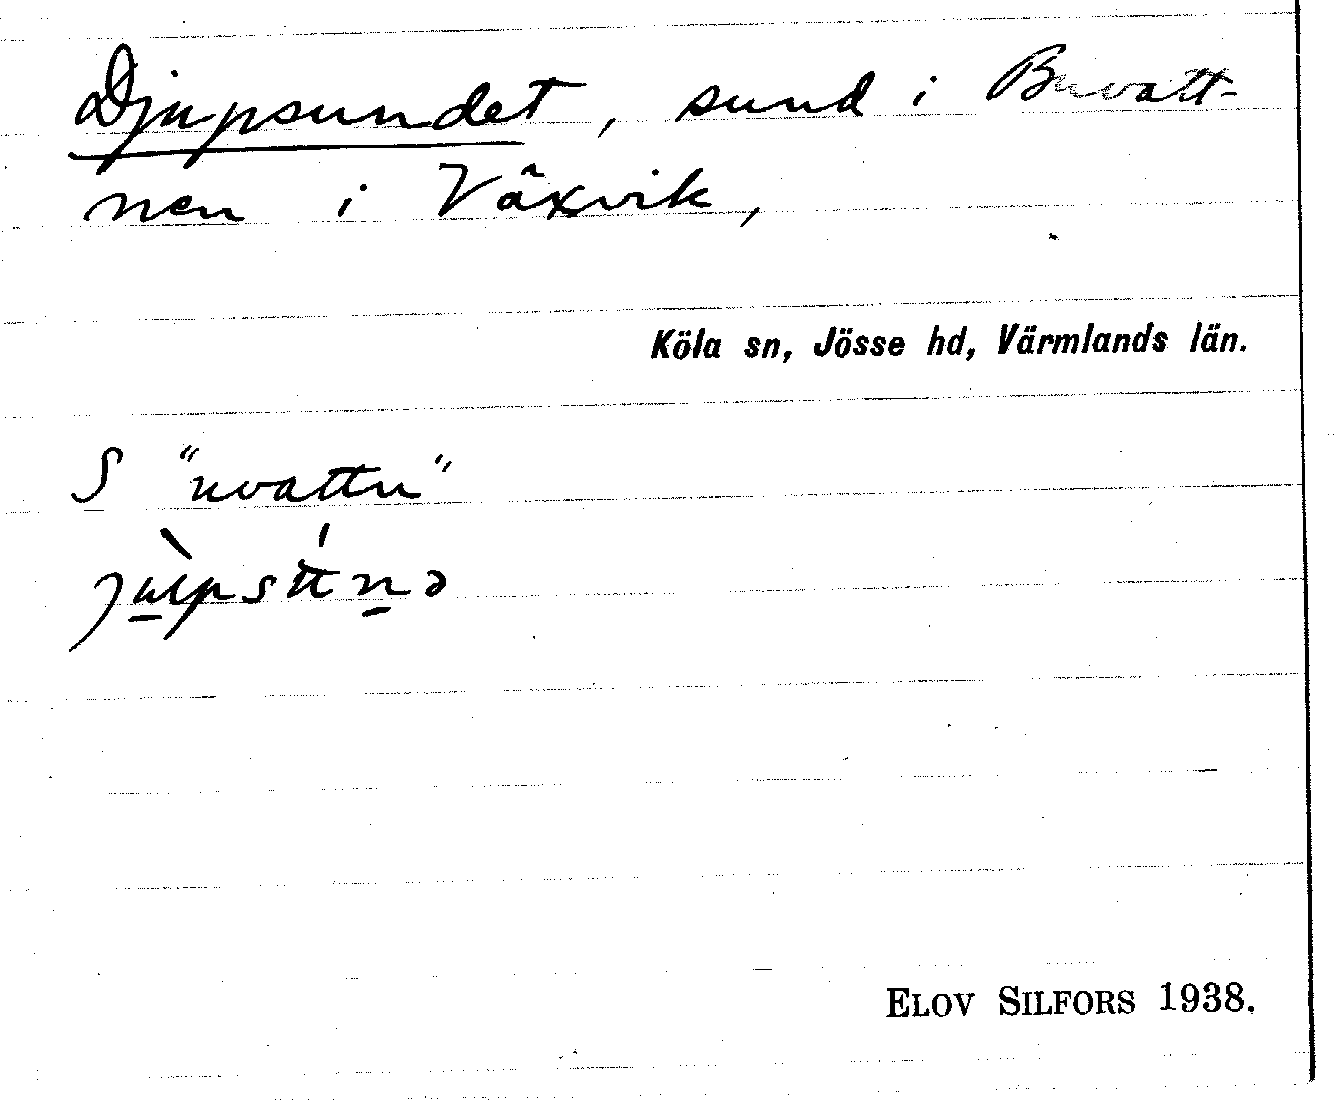 Djupsundet, sund i Buvatt-
nen i Växvik,
Köla sn, Jösse hd, Värmlands län.
S "uvattn"
ELOV SILFORS 1938.